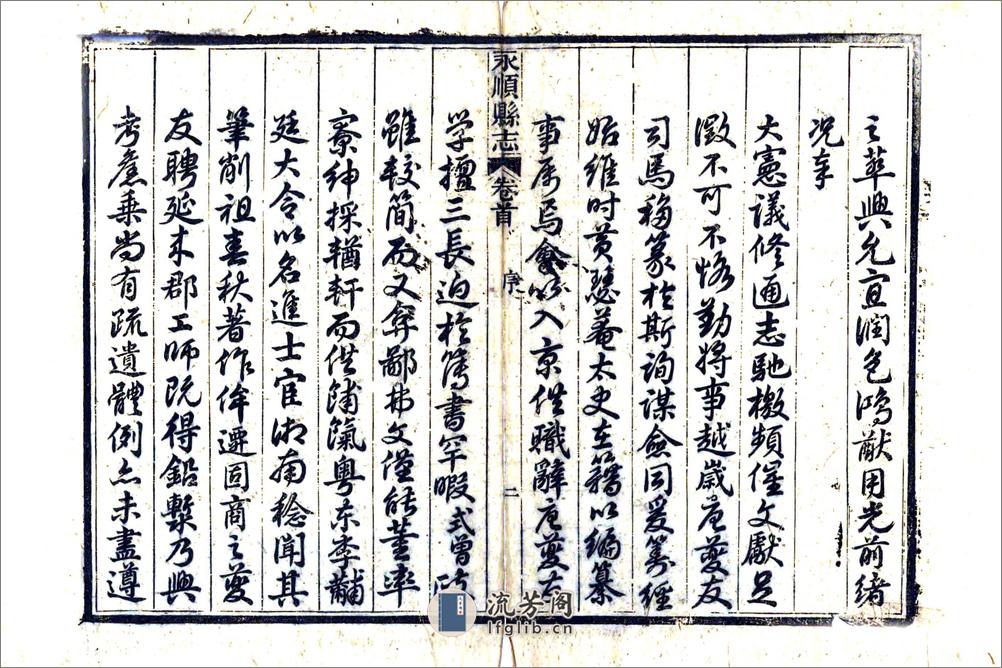 之萃興允宜潤色鴻猷用光前緒
況奉
大憲議修通志馳檄頻催文獻足
徵不可不恪勤將事越歲唐夔友
司馬移篆於斯詢謀僉同爰籌經
始維時黃瑟菴太史在籍以編纂
事屬焉以入京供職辭唐夔友
永順縣志 卷首 序 二
學擅三長迫於簿書罕暇式曾政
雖較簡而又弇鄙弗文僅能董率
寮紳採輶軒而供餔餼粵東李黼
廷大令以名進士宦湘南稔聞其
筆削祖春秋著作侔遷固商之夔
友聘延來郡工師既得鉛槧乃興
考舊乘尚有疏遺體例亦未盡遵
流芳阁
lfglib.cn